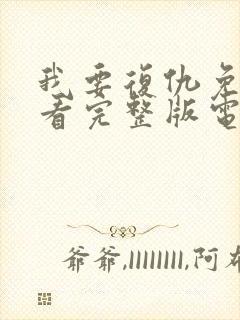 我要復仇免
看完整版電
爺爺,llllllll,阿布